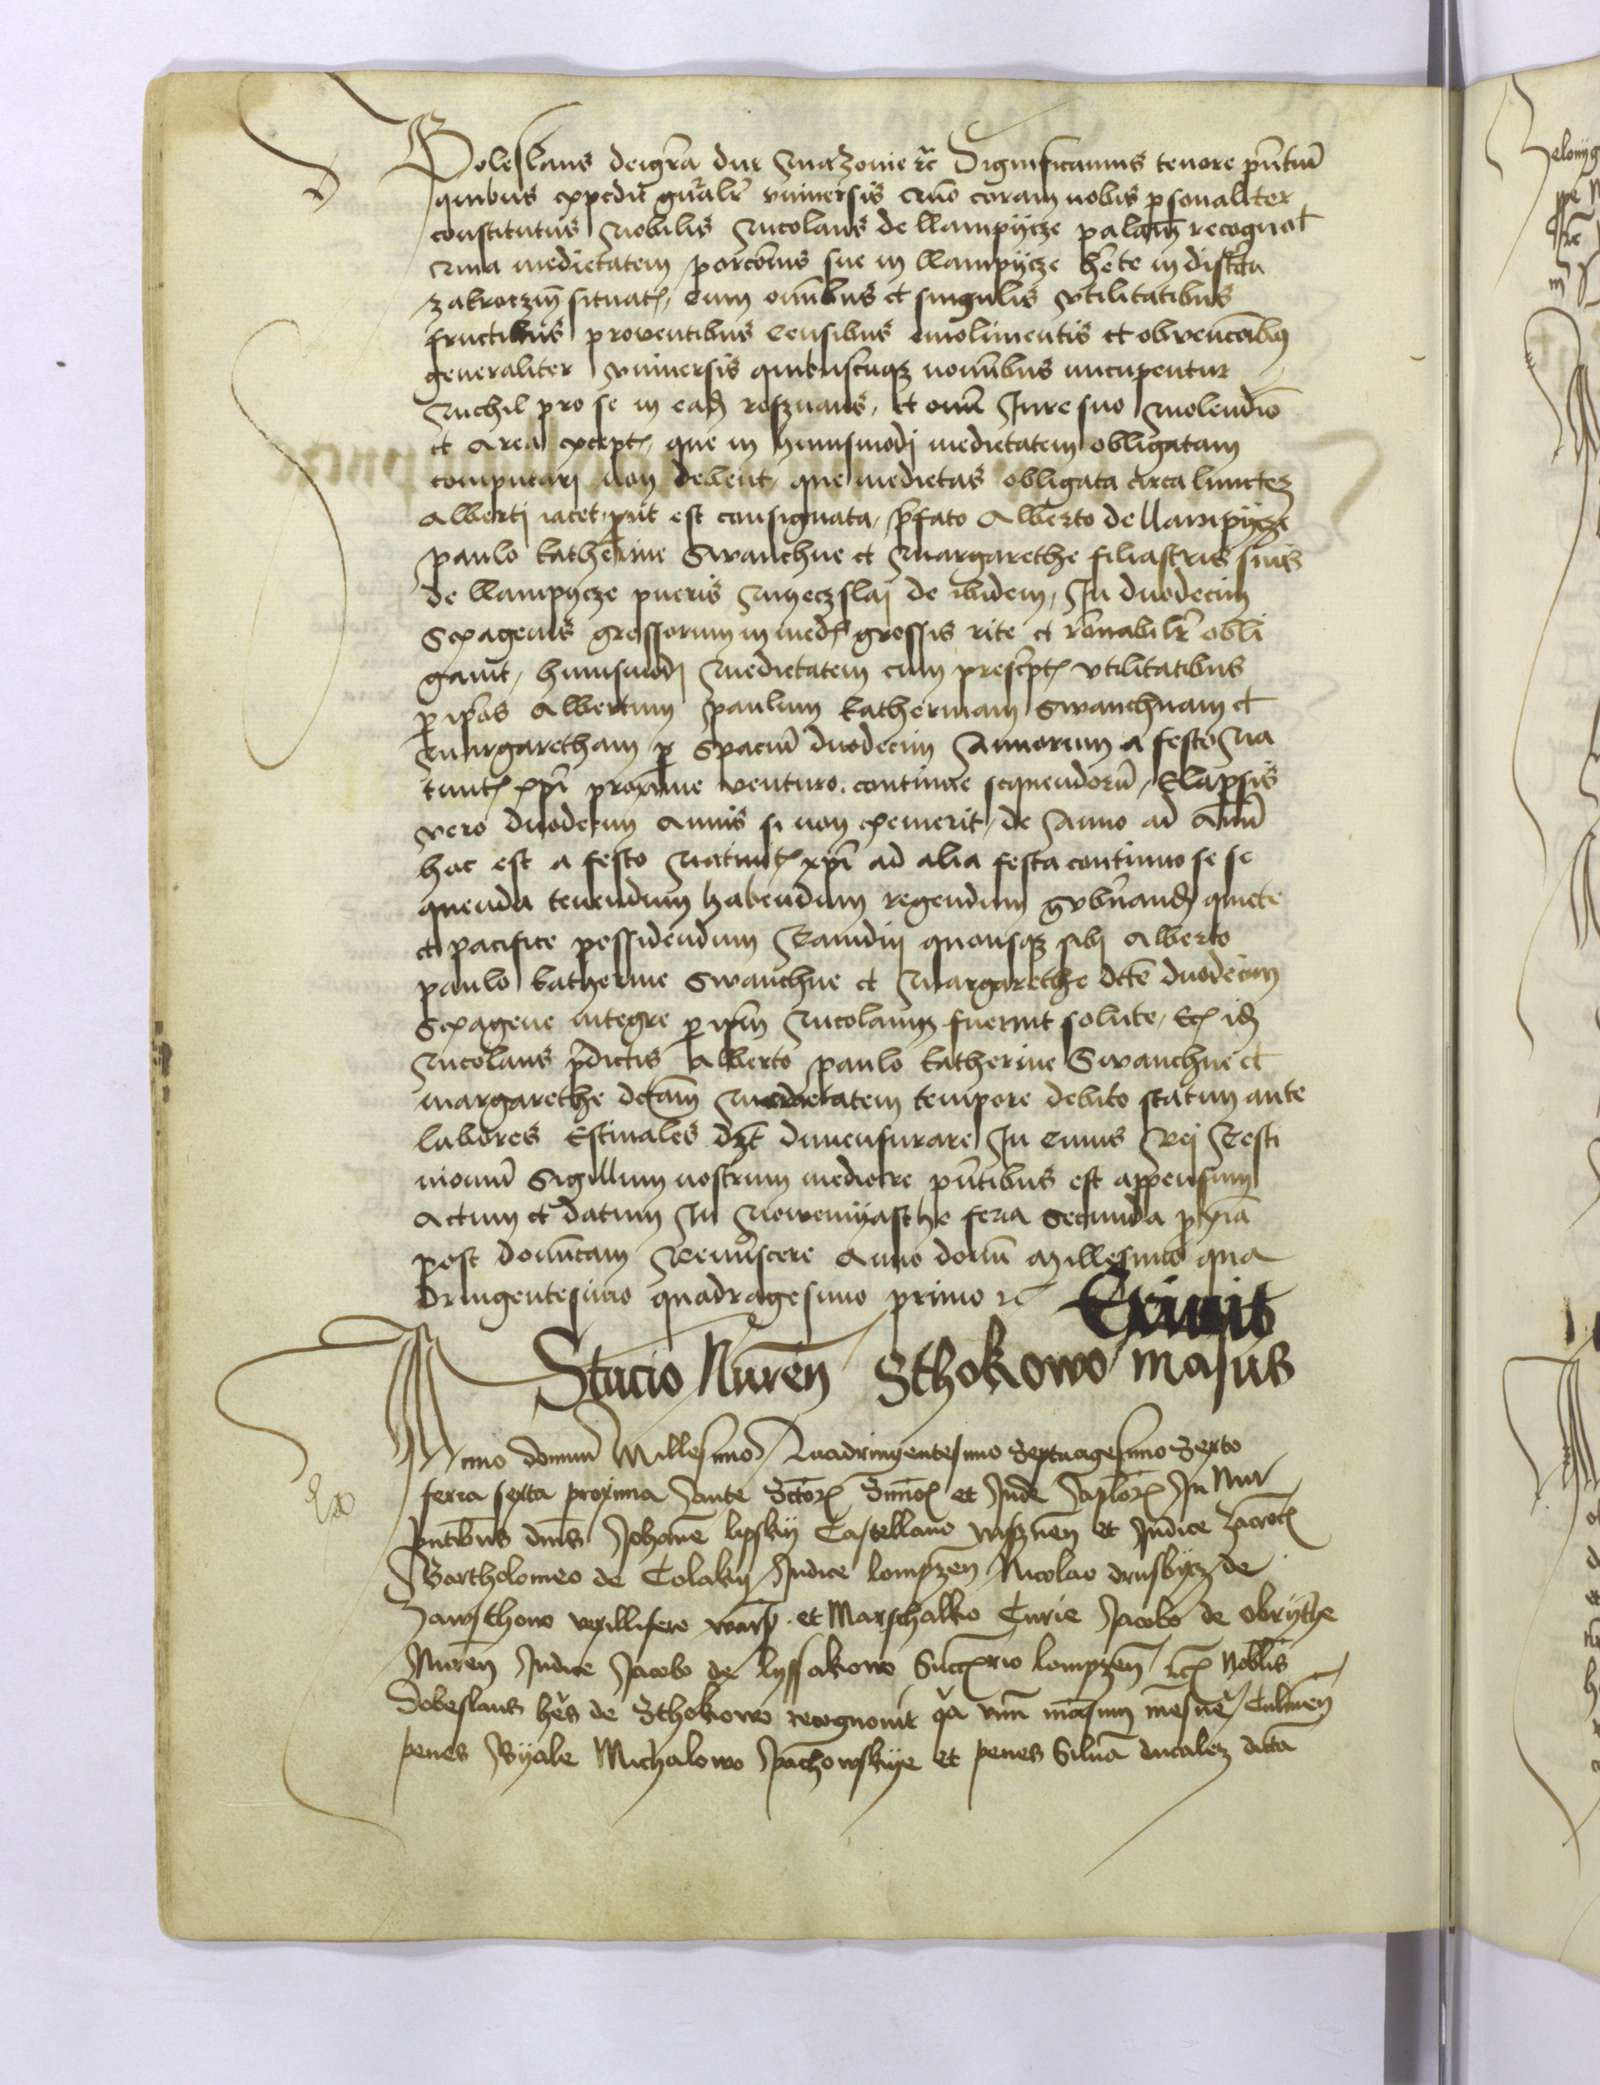 Boleslaus dei gra͞ dux Mazouie rc̃ Significamus tenore pñtiũ
quibus expedit gñalr̃ vniuersis Quõ coram nobis personaliter
constitutus Nobilis Nicolaus de llampycze palam recognoɫ
Quia medietatem porcõnis sue in llampycze hẽte in districtu
zakroczim̃ situatꝭ cum oñibus et singulis vtilitatibus
fructibus prouentibus Censibus emolimentis et obuencõibꝯ
generaliter vniuersis quibuscũqꝫ noĩnibus nuncupentur
Nichil pro se in eadꝫ reseruans, et oñi Jure suo Molendino
et Area exceptꝭ que in huiusmodj medietatem obligatam
computarj non debent, que medietas obligata circa limitez
Albertj iacet, prut est consignata, p̃fato Alberto de llampycze
paulo katherine Swanchne et Margarethe filiastris suis
de llampycze pueris Myeczslaj de ibidem, In duodecim
Sexagenis grossorum in medꝭ grossis rite et rõnabilr̃ obli
gauit, huiusmodj Medietatem cum prescriptꝭ vtilitatibus
ꝑ ip̃os Albertum paulum katherinam Swanchnam et
Margaretham ꝑ Spaciũ duodecim Annorum a festo Na
tiuitꝭ xp̃i proxime venturo. continue sequendorũ, Elapsis
vero duodecim Annis si non exemerit, de Anno ad Annũ
hoc est a festo Natiuitꝭ xp̃i ad alia festa continuo se se
quenda tenendum habendum regendum gubernandꝫ quiete
et pacifice possidendum Tamdiu quousqꝫ sibi Alberto
paulo katherine Swanchne et Margarethe dcẽ duodecim
Sexagene integre ꝑ ip̃m Nicolaum fuerint solute, Ecꝫ idꝫ
Nicolaus p̃dictis Alberto paulo katherine Swanchne et
margarethe dcãm Medietatem tempore debito statim ante
labores Estiuales dꝫt dimensurare In Cuius Rej Testi
moniũ Sigillum nostrum mediocre pñtibus est appensum
Actum et datum In Nowemyastho feria Secunda pxiã
post dominicam Reminiscere Anno domĩ Millesimo qua
dringentesimo quadragesimo primo rc̃ Exiuit
Stacio Nuren̄ Sthokowo maius
Anno domini Millesimo Quadringentesimo Septuagesimo Sexto
feria sexta proxima Ante Sctorꝫ Simoꝭ et Jude Aplorꝫ In Nur
pñtibus dñis Johanne lipsky Castellano wysznen̄ et Judice zacrocꝭ
Bartholomeo de Colaky Judice lompzen̄ Nicolao drusbycz de
Zawsthowo vexillifero wars̄. et Marschalko Curie Jacobo de obrythe
Nuren̄ Judice Jacobo de lyssakowo Succrio lompzen̄ rcꝫ Nobilis
Dobeslaus hr̃s de Sthokowo recognouit qa vnũ mansum mensure Culmen̄
penes Byale Michalowo Pachowskye et penes Siluã ducalez dictã